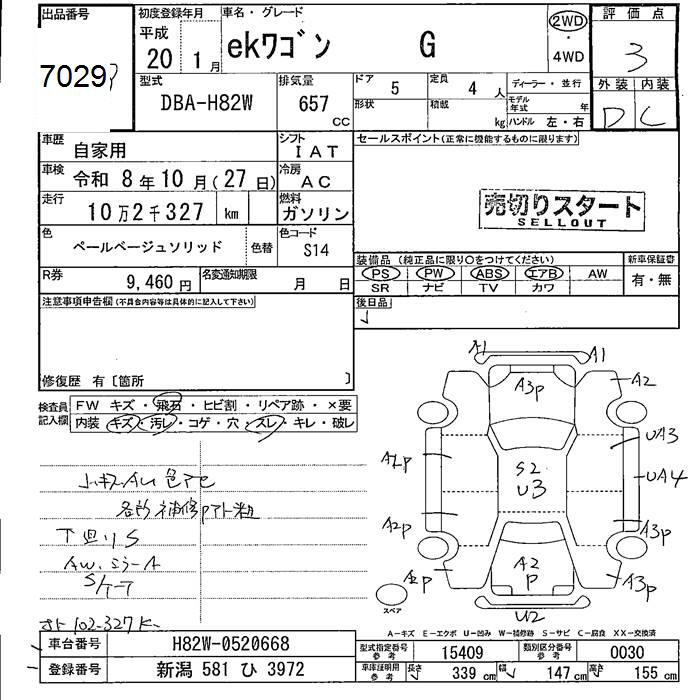 出品番号 初度登録年月 車名・グレード 評価点
7029
平成 20 1月 ekワゴン G 2WD 4WD 3
型式 排気量 ドア 5 定員 4人 ディーラー・並行 外装 内装
DBA-H82W 657 CC 形状 積載 kg モデル年式 年 ハンドル 左・右 D C
車歴 自家用 シフト IAT セールスポイント(正常に機能するものに限ります)
車検 令和 8年10月(27日) 冷房 AC
走行 10万2千327 km 燃料 ガソリン
売切りスタート
SELLOUT
色 ペールベージュソリッド 色替 色コード S14
装備品 (純正品に限り○をつけてください) 新車保証書
PS PW ABS エアB AW 有・無
SR ナビ TV カワ
R券 9,460円 名変通知期限 月 日
注意事項申告欄(不具合内容等は具体的に記入して下さい) 後日品
修復歴 有〔箇所 〕
検査員記入欄 FW キズ・飛石・ヒビ割・リペア跡・×要
内装 キズ・汚レ・コゲ・穴・スレ・キレ・破レ
A1 A1
A3P A2
UA3
A2P S2 U3 UA4
A2P A3P
A2P A2P A3P
U2
スペア
各所補修アト粗
下廻りS
102-327K
A-キズ E-エクボ U-凹み W-補修跡 S-サビ C-腐食 XX-交換済
車台番号 H82W-0520668 型式指定番号 参考 15409 類別区分番号 参考 0030
登録番号 新潟 581 ひ 3972 車庫証明用 参考 長さ 339cm 幅 147cm 高さ 155cm